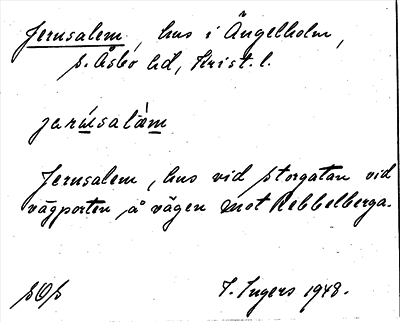 Jerusalem, hus i Ängelholm,
s. Åsbo hd, Krist. l.
jerúsalàm
Jerusalem, hus vid storgatan vid
vägporten å vägen mot Rebbelberga.
I. Ingers 1948.